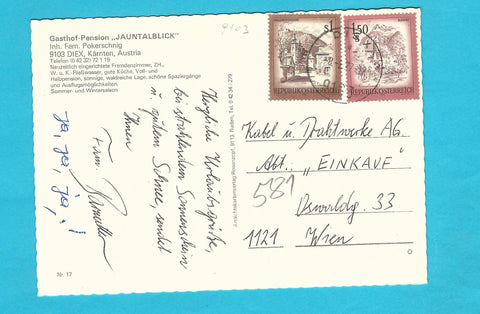 Gasthof-Pension „JAUNTALBLICK"
Inh. Fam. Pokerschnig
9103 DIEX, Kärnten, Austria
Telefon (0 42 32) 72 1 19
Neuzeitlich eingerichtete Fremdenzimmer, ZH.,
W. u. K.-Fließwasser, gute Küche, Voll- und
Halbpension, sonnige, waldreiche Lage, schöne Spaziergänge
und Ausflugsmöglichkeiten.
Sommer- und Wintersaison
9103
Herzliche Urlaubsgrüße,
bei strahlendem Sonnenschein
u. gutem Schnee, sendet
Ihnen
Fam.
ja, ja, ja, !
Nr. 17
Ansichtskartenverlag Rosenzopf, 9113 Ruden, Tel. 0 42 34 / 279
S1
REPUBLIK ÖSTERREICH
1.50 S
REPUBLIK ÖSTERREICH
Kabel u. Drahtwerke AG.
Abt. „EINKAUF"
581
Oswaldg. 33
1121 Wien